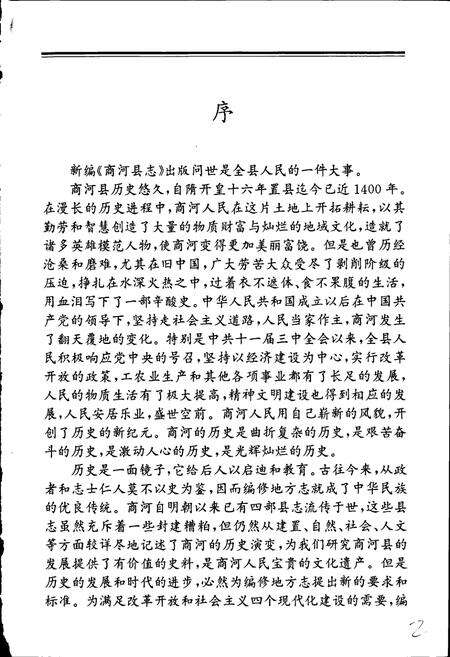 序
新编《商河县志》出版问世是全县人民的一件大事。
商河县历史悠久,自隋开皇十六年置县迄今已近 1400 年。
在漫长的历史进程中,商河人民在这片土地上开拓耕耘,以其
勤劳和智慧创造了大量的物质财富与灿烂的地域文化,造就了
诸多英雄模范人物,使商河变得更加美丽富饶。但是也曾历经
沧桑和磨难,尤其在旧中国,广大劳苦大众受尽了剥削阶级的
压迫,挣扎在水深火热之中,过着衣不遮体、食不果腹的生活,
用血泪写下了一部辛酸史。中华人民共和国成立以后在中国共
产党的领导下,坚持走社会主义道路,人民当家作主,商河发生
了翻天覆地的变化。特别是中共十一届三中全会以来,全县人
民积极响应党中央的号召,坚持以经济建设为中心,实行改革
开放的政策,工农业生产和其他各项事业都有了长足的发展,
人民的物质生活有了极大提高,精神文明建设也得到相应的发
展,人民安居乐业,盛世空前。商河人民用自己崭新的风貌,开
创了历史的新纪元。商河的历史是曲折复杂的历史,是艰苦奋
斗的历史,是激动人心的历史,是光辉灿烂的历史。
历史是一面镜子,它给后人以启迪和教育。古往今来,从政
者和志士仁人莫不以史为鉴,因而编修地方志就成了中华民族
的优良传统。商河自明朝以来已有四部县志流传于世,这些县
志虽然充斥着一些封建糟粕,但仍然从建置、自然、社会、人文
等方面较详尽地记述了商河的历史演变,为我们研究商河县的
发展提供了有价值的史料,是商河人民宝贵的文化遗产。但是
历史的发展和时代的进步,必然为编修地方志提出新的要求和
标准。为满足改革开放和社会主义四个现代化建设的需要,编
2